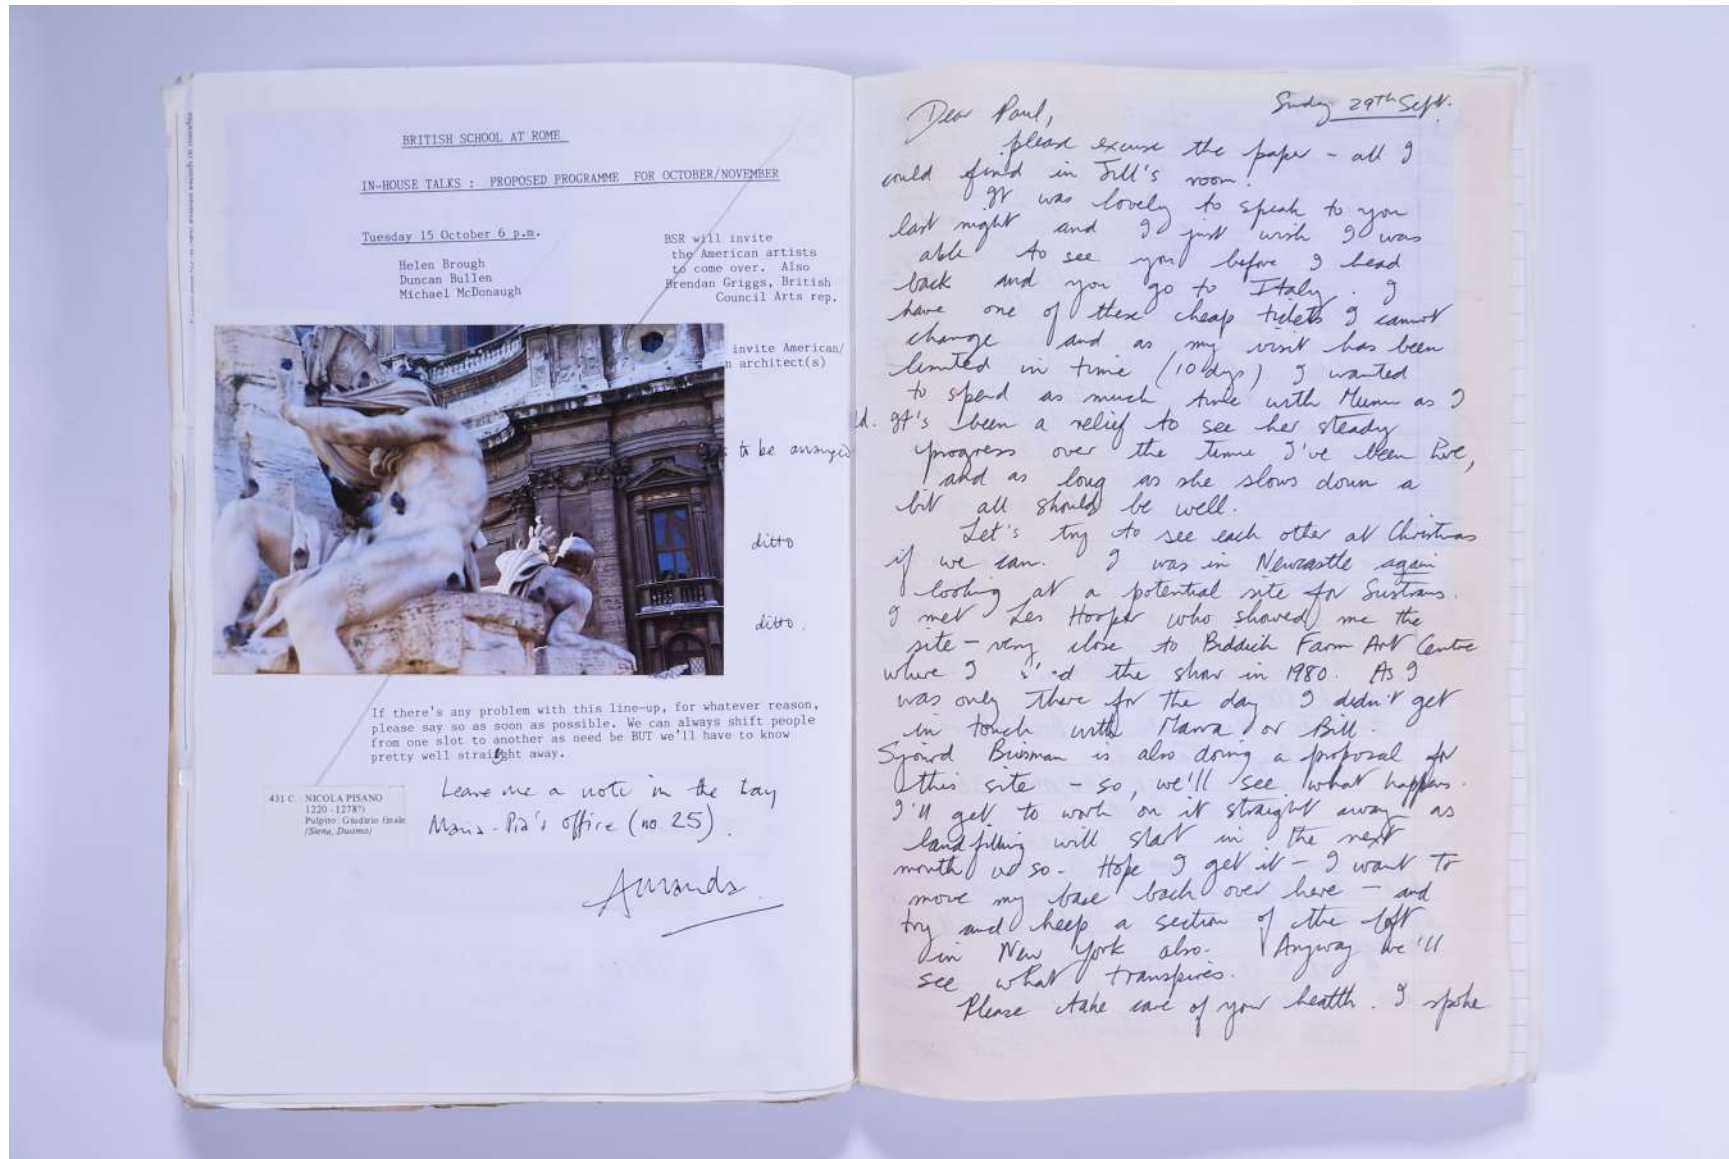 BRITISH SCHOOL AT ROME
IN-HOUSE TALKS : PROPOSED PROGRAMME FOR OCTOBER/NOVEMBER
Tuesday 15 October 6 p.m.
Helen Brough
Duncan Bullen
Michael McDonaugh
BSR will invite
the American artists
to come over. Also
Brendan Griggs, British
Council Arts rep.
invite American/
architect(s)
to be arranged
ditto
ditto.
If there's any problem with this line-up, for whatever reason,
please say so as soon as possible. We can always shift people
from one slot to another as need be BUT we'll have to know
pretty well straight away.
431 C - NICOLA PISANO
1220 - 1278?)
Pulpito: Giudizio finale
(Siena, Duomo)
Leave me a note in the tray
Maria-Pia's office (no. 25).
Amanda
Sunday 29TH Sept.
Dear Paul,
please excuse the paper - all I
could find in Jill's room.
It was lovely to speak to you
last night and I just wish I was
able to see you before I head
back and you go to Italy. I
have one of these cheap tickets I cannot
change and as my visit has been
limited in time (10 days) I wanted
to spend as much time with Mum as I
It's been a relief to see her steady
progress over the time I've been here,
and as long as she slows down a
bit all should be well.
Let's try to see each other at Christmas
if we can. I was in Newcastle again
looking at a potential site for Sustrans.
I met Les Hooper who showed me the
site - very close to Biddick Farm Art Centre
where I the show in 1980. As I
was only there for the day I didn't get
in touch with or Bill.
is also doing a proposal for
this site - so, we'll see what happens.
I'll get to work on it straight away as
landfilling will start in the next
month or so. Hope I get it - I want to
move my base back over here - and
try and keep a section of the loft
in New York also. Anyway we'll
see what transpires.
Please take care of your health. I spoke